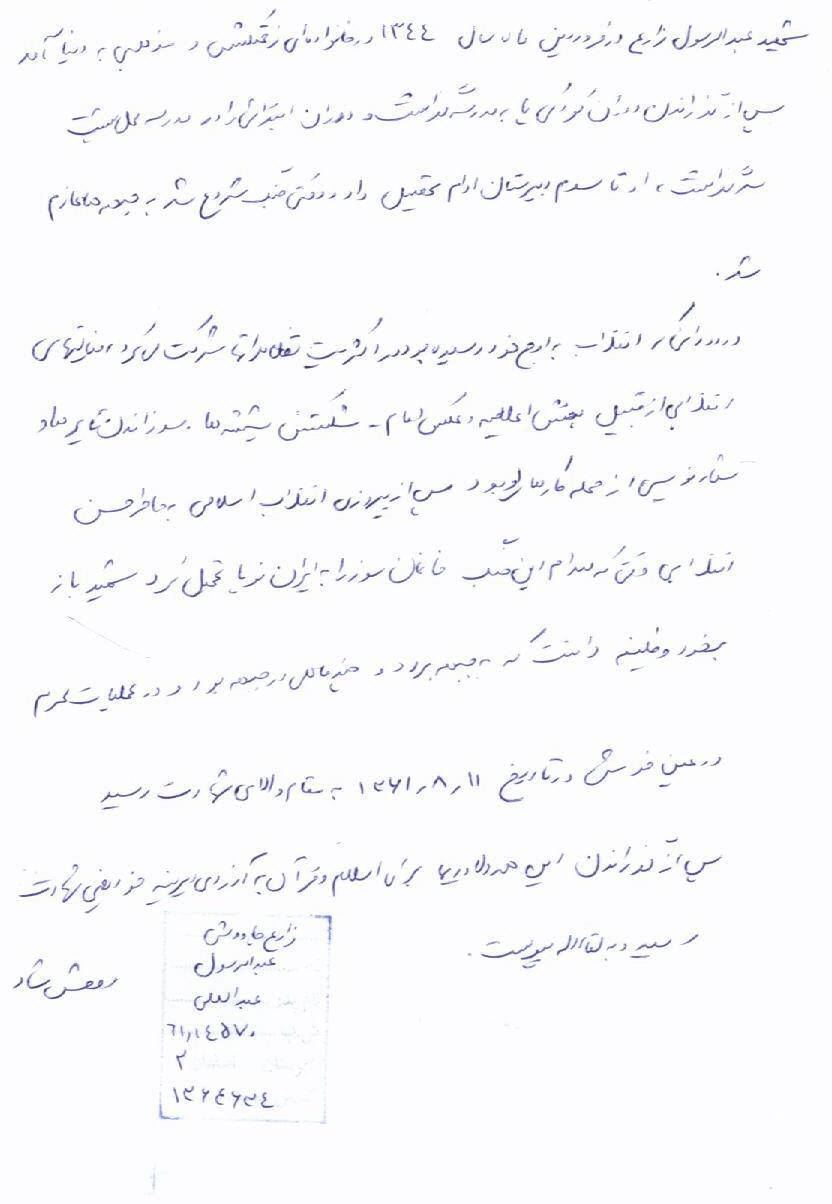 شهید عبدالرسول زارع در فروردین ماه سال ۱۳۴۴ در خانواده‌ای زحمتکش و مذهبی به دنیا آمد
پس از گذراندن دوران کودکی پا به مدرسه گذاشت و دوران ابتدائی را در مدرسه
گذاشت، او تا سوم دبیرستان ادامه تحصیل داد و وقتی جنگ شروع شد به جبهه‌ها عازم
شد.
در دورانی که انقلاب به اوج خود رسیده بود در اکثریت تظاهراتها شرکت می‌کرد فعالیتهای
انقلابی از قبیل پخش اعلامیه و عکس امام - شکستن شیشه‌ها - سوزاندن تایرها و
شعارنویسی از جمله کارهای او بود پس از پیروزی انقلاب اسلامی به خاطر حسن
انقلابی وقتی که صدام این جنگ خانمان سوز را به ایران نوپا تحمیل کرد شهید باز
بخود وظیفه دانست که به جبهه برود و چند ماهی در جبهه بود و در عملیات محرم
در عین خوش در تاریخ ۱۳۶۱/۸/۱۱ به مقام والای شهادت رسید
پس از گذراندن این همه دلاوریها برای اسلام و قرآن به آرزوی دیرینه خود یعنی شهادت
رسید و به لقاءالله پیوست.
روحش شاد
زارع
عبدالرسول
عبدالعلی
۶۱۱۴۵۷۰
۲
۱۳۶۴۶۳۴